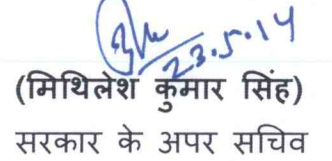 23.5.14
(मिथिलेश कुमार सिंह)
सरकार के अपर सचिव